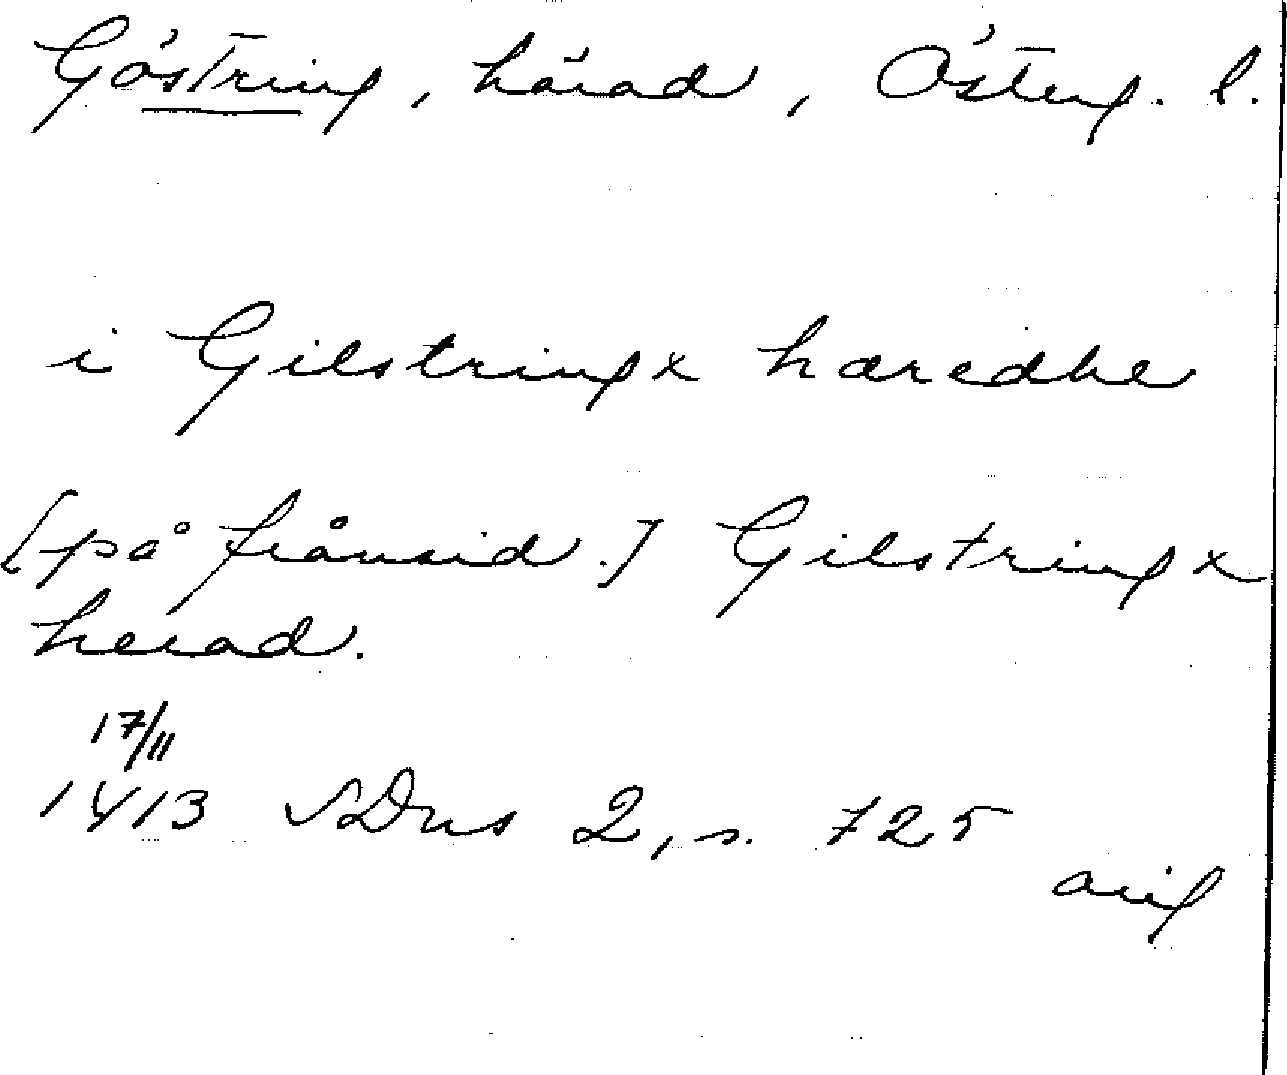 Göstring, härad, Österg. l.
i Gilstringx hæredhe
[på frånsid.] Gilstringx
herad.
17/11
1413 SDns 2, s. 725
orig